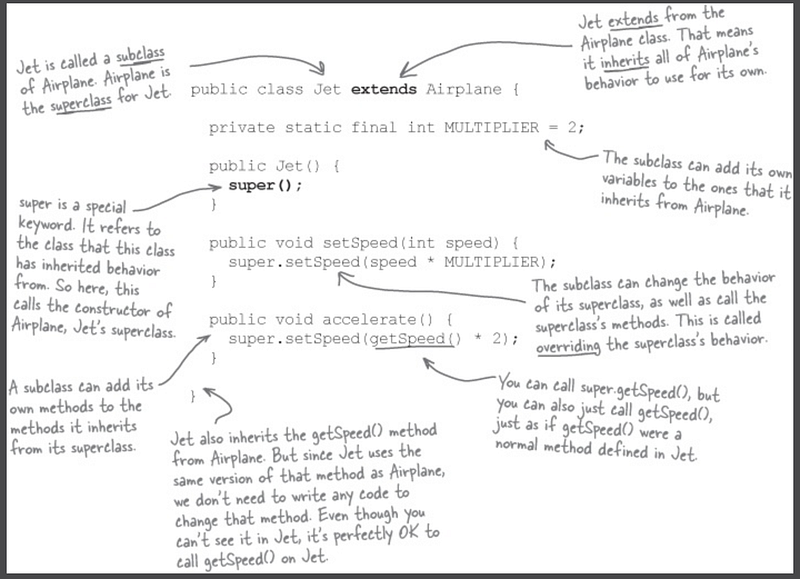 Jet is called a subclass
of Airplane. Airplane is
the superclass for Jet.
Jet extends from the
Airplane class. That means
it inherits all of Airplane's
behavior to use for its own.
public class Jet extends Airplane {
private static final int MULTIPLIER = 2;
The subclass can add its own
variables to the ones that it
inherits from Airplane.
public Jet() {
super();
}
super is a special
keyword. It refers to
the class that this class
has inherited behavior
from. So here, this
calls the constructor of
Airplane, Jet's superclass.
public void setSpeed(int speed) {
super.setSpeed(speed * MULTIPLIER);
}
The subclass can change the behavior
of its superclass, as well as call the
superclass's methods. This is called
overriding the superclass's behavior.
public void accelerate() {
super.setSpeed(getSpeed() * 2);
}
A subclass can add its
own methods to the
methods it inherits
from its superclass.
You can call super.getSpeed(), but
you can also just call getSpeed(),
just as if getSpeed() were a
normal method defined in Jet.
}
Jet also inherits the getSpeed() method
from Airplane. But since Jet uses the
same version of that method as Airplane,
we don't need to write any code to
change that method. Even though you
can't see it in Jet, it's perfectly OK to
call getSpeed() on Jet.